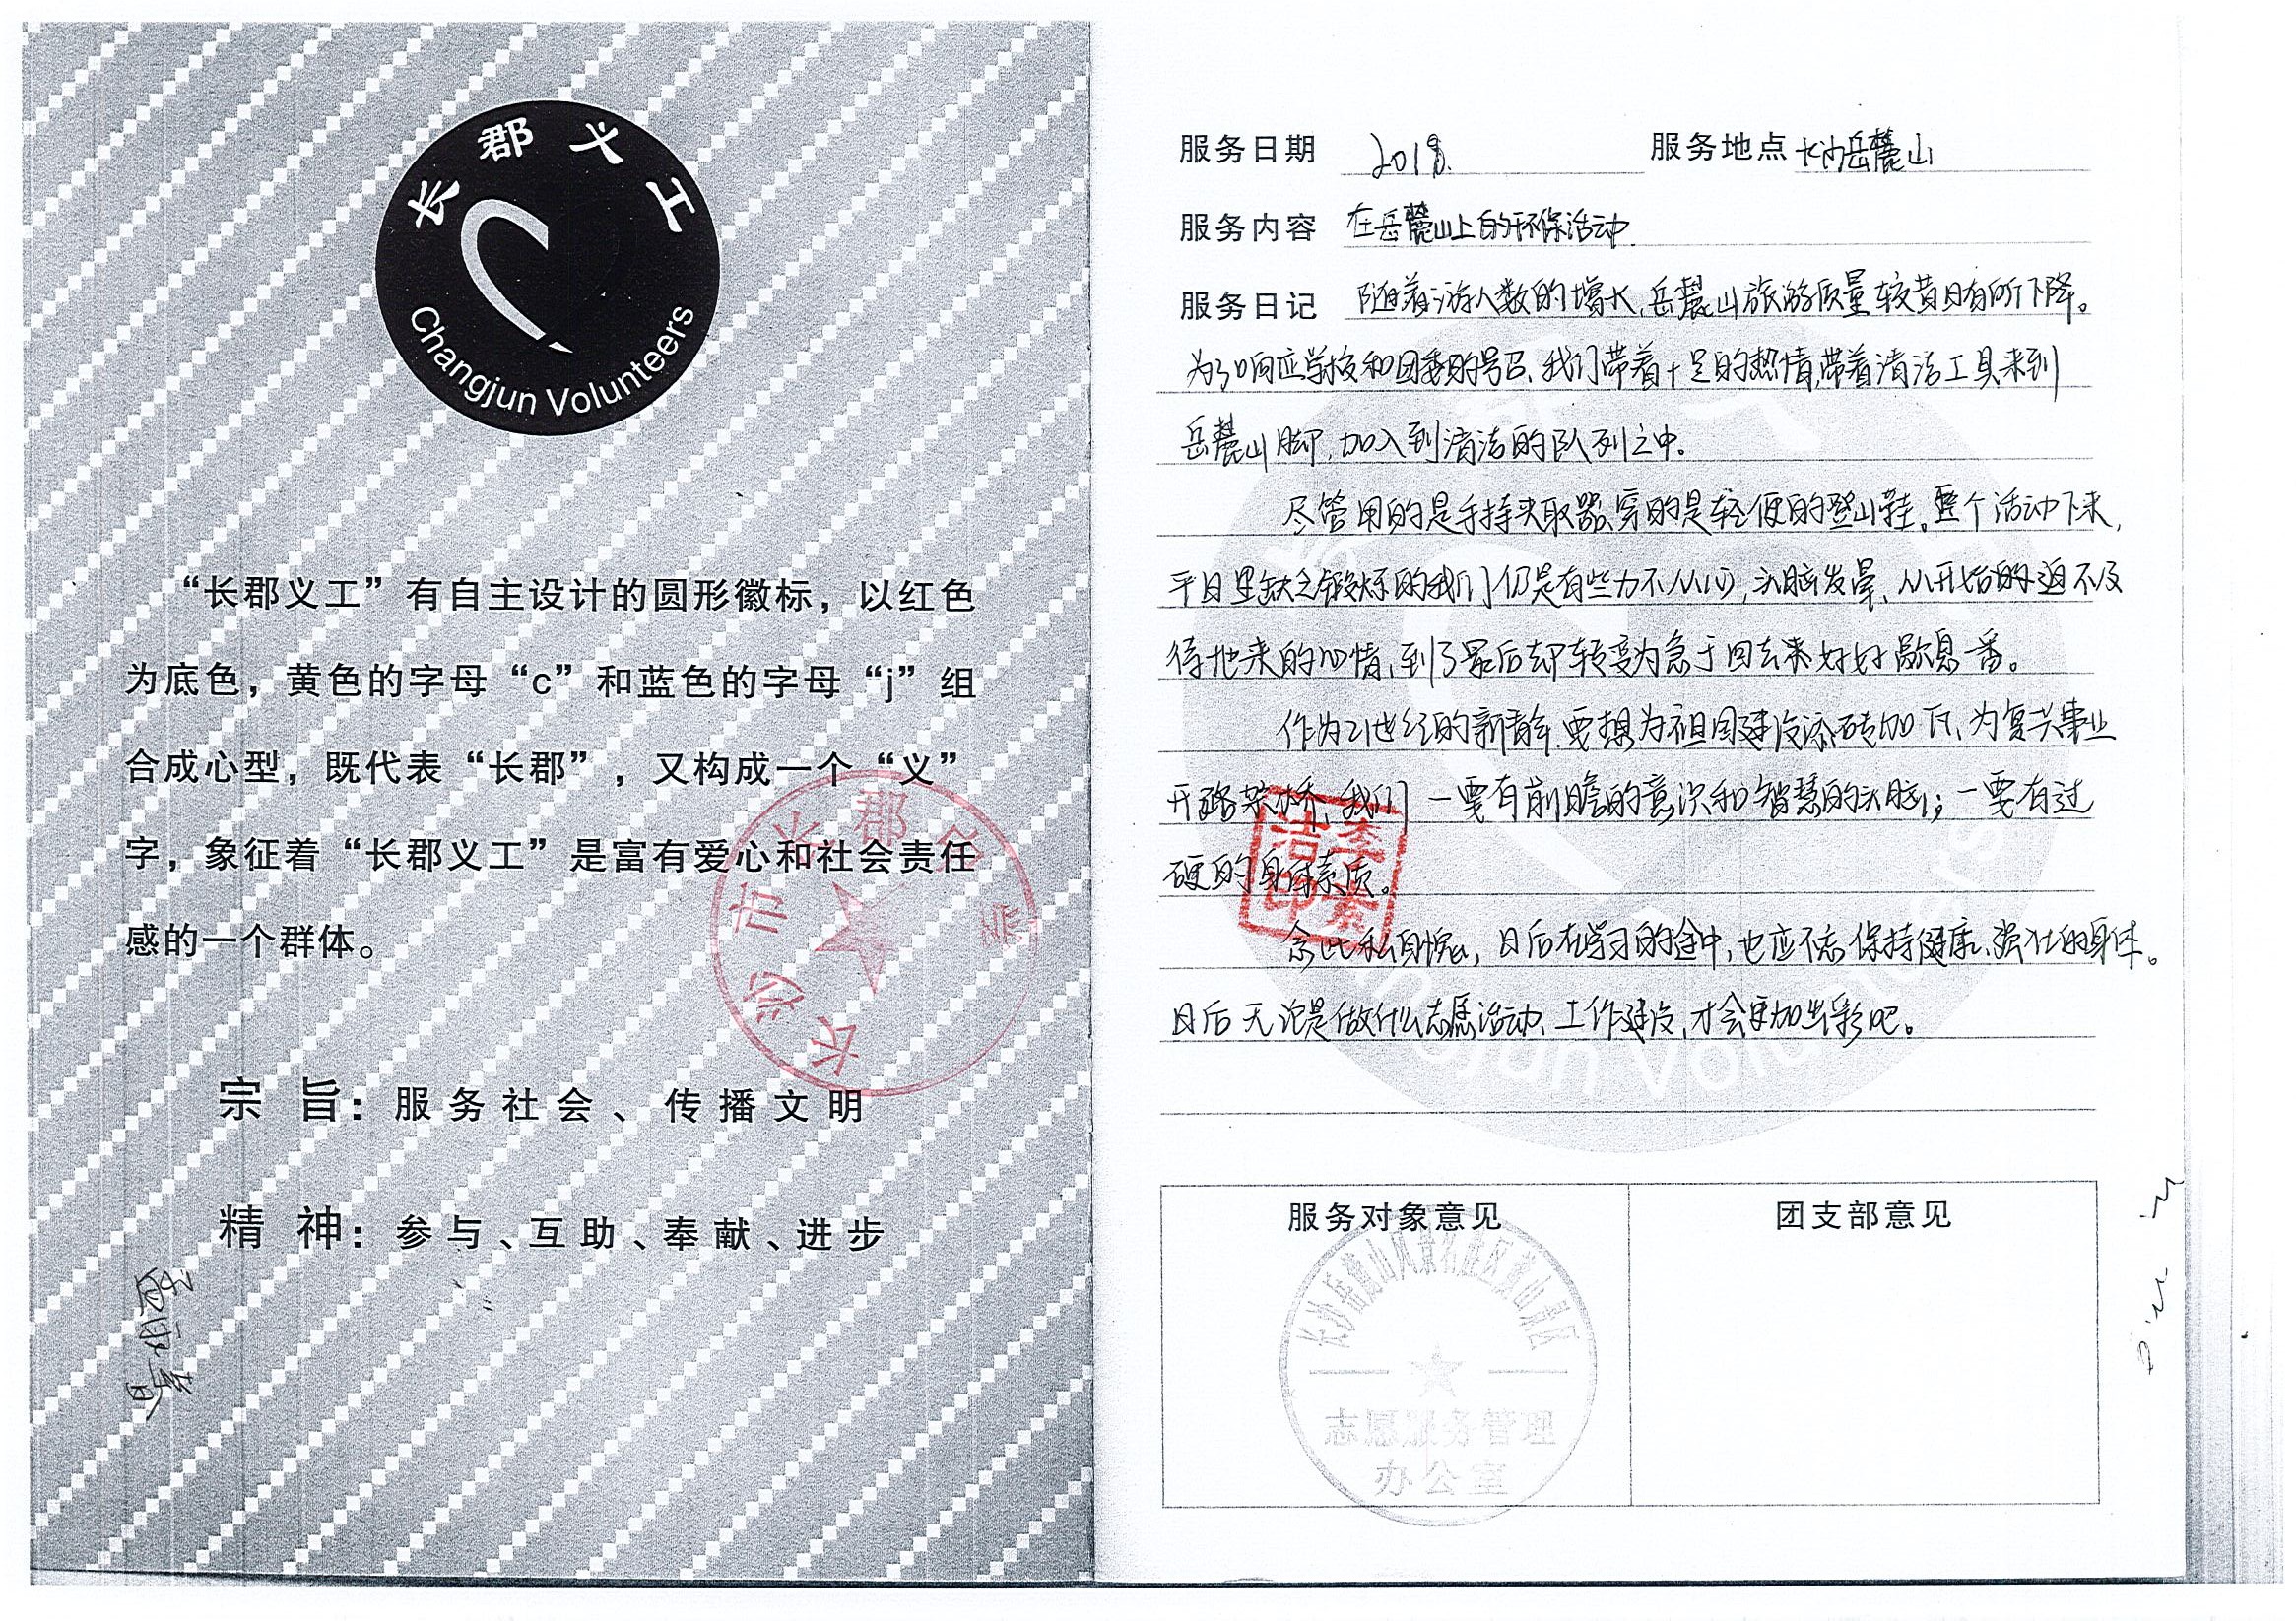 长郡义工
Changjun Volunteers
“长郡义工”有自主设计的圆形徽标，以红色
为底色，黄色的字母“c”和蓝色的字母“j”组
合成心型，既代表“长郡”，又构成一个“义”
字，象征着“长郡义工”是富有爱心和社会责任
感的一个群体。
长沙市长郡
宗 旨：服务社会、传播文明
精 神：参与、互助、奉献、进步
服务日期 2018. 服务地点 长沙岳麓山
服务内容 在岳麓山上的环保活动.
服务日记 随着游人数的增长,岳麓山旅游质量较昔日有所下降。
为了响应学校和团委的号召,我们带着十足的热情,带着清洁工具来到
岳麓山脚,加入到清洁的队列之中。
尽管用的是手持夹取器,穿的是轻便的登山鞋,整个活动下来,
平日里缺乏锻炼的我们仍是有些力不从心,头脑发晕、从开始的迫不及
待地来的心情,到了最后却转变为急于回去来好好歇息一番。
作为21世纪的新青年,要想为祖国建设添砖加瓦、为复兴事业
开路架桥,我们一要有前瞻的意识和智慧的头脑;一要有过
硬的身体素质。
李素洁印
念此私自愧,日后在学习的途中,也应不忘保持健康、强壮的身体。
日后无论是做什么志愿活动、工作建设,才会更加出彩吧。
Changjun Volunteers
服务对象意见 团支部意见
长沙岳麓山风景名胜区麓山景区
志愿服务管理
办公室